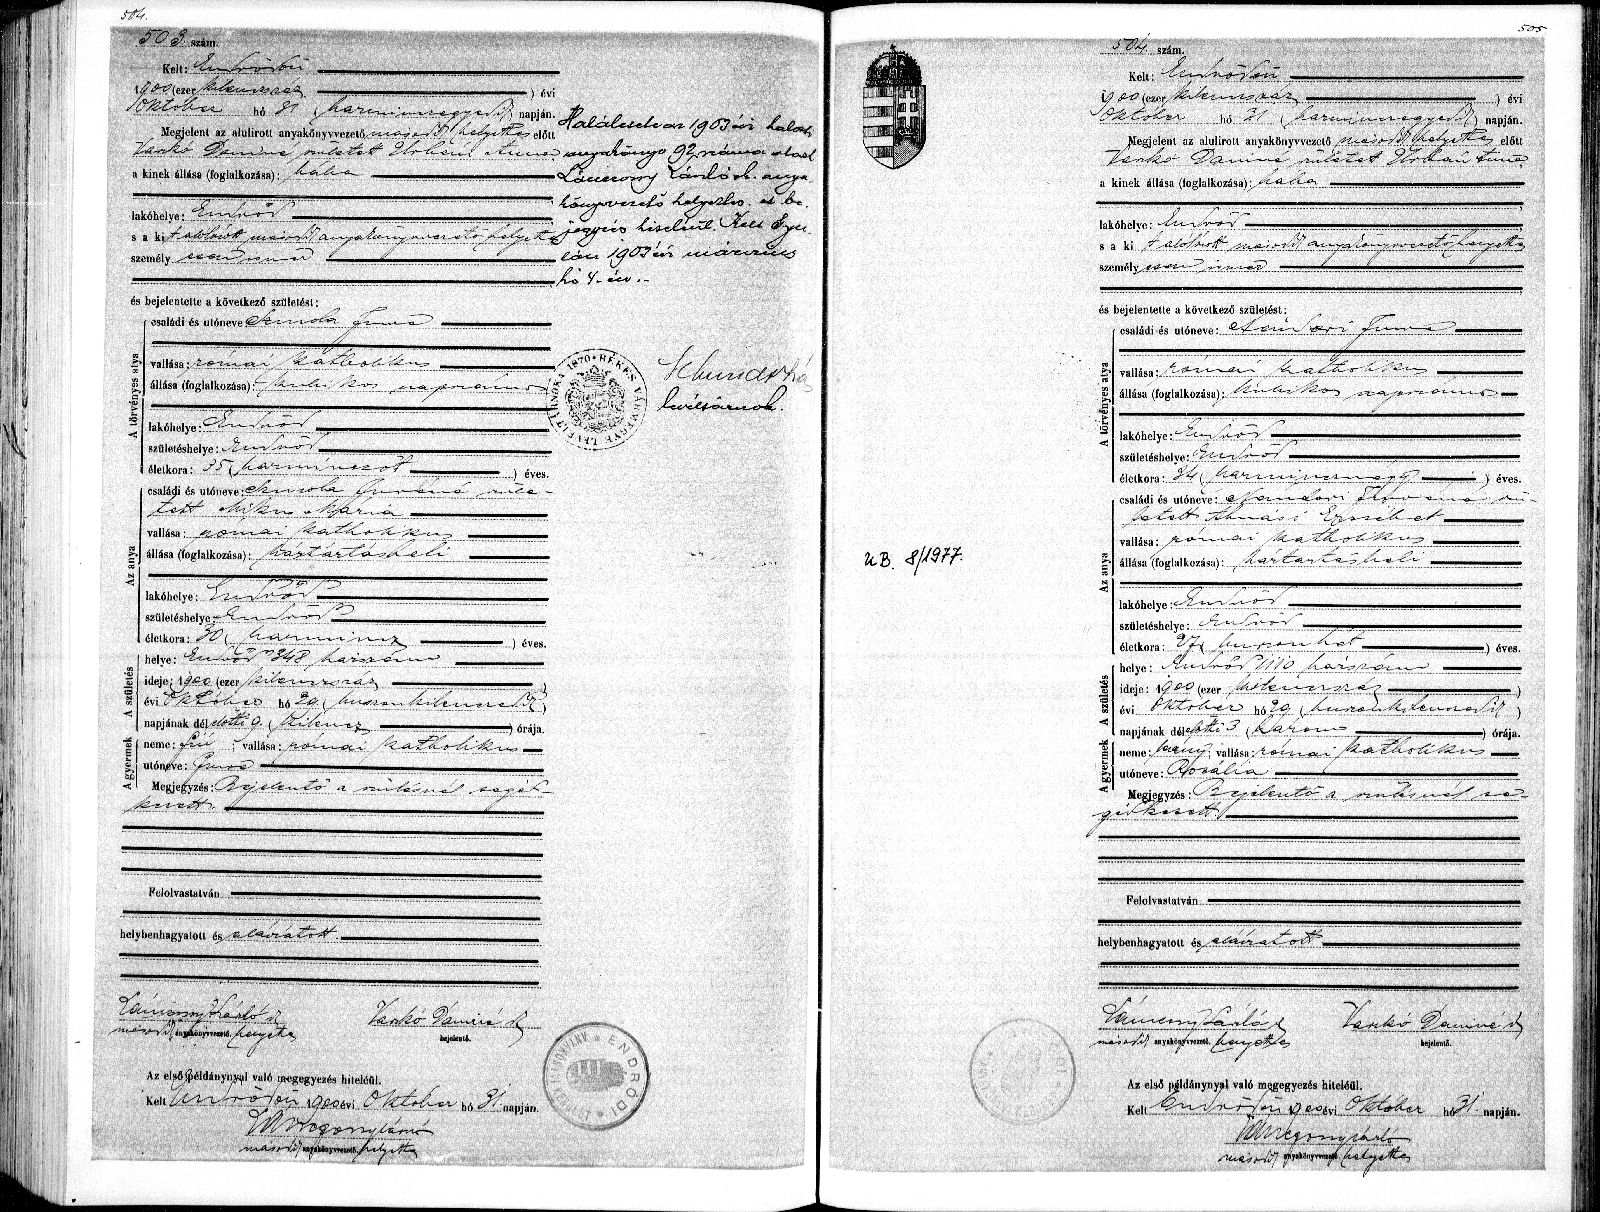 504.
503. szám.
Kelt: Endrődön
1900 (ezer kilenczszáz) évi
Október hó 31 (harminczegyedik) napján.
Megjelent az alulirott anyakönyvezető másodk helyettes előtt
Vaskó Dániné született Urbán Anna
a kinek állása (foglalkozása): bába
lakóhelye: Endrőd
s a kit alólirott másodk anyakönyvvezető helyettes
személy esen ismer
és bejelentette a következő születést:
A törvényes atya
családi és utóneve:
vallása: római katholikus
állása (foglalkozása): kubikos napszámos
lakóhelye: Endrőd
születéshelye: Endrőd
életkora: 35 (harminczöt) éves.
Az anya
családi és utóneve: szüle-
tett Mária
vallása: római katholikus
állása (foglalkozása): háztartásbeli
lakóhelye: Endrőd
születéshelye: Endrőd
életkora: 30 (harmincz) éves.
A születés
helye: Endrőd 348 házszám
ideje: 1900 (ezer kilenczszáz)
évi Október hó 29 (huszonkilenczedik)
napjának délelőtti 9 (kilencz) órája.
A gyermek
neme: fiú; vallása: római katholikus
utóneve:
Megjegyzés: Bejelentő a szülésnél segéd-
kezett.
Felolvastatván
helybenhagyatott és aláíratott.
másodk anyakönyvvezető helyettes
Vaskó Dániné
bejelentő.
Az első példánynyal való megegyezés hiteléül.
Kelt Endrődön 1900 évi Október hó 31 napján.
másodk anyakönyvvezető helyettes
Halálesete az 1903 évi halotti
anyakönyv 92 száma alatt
anya-
könyvvezető helyettes. ez be-
jegyzés hiteléül. Kelt Gyu-
lán 1903 évi márczius
hó 4-én.-
BÉKÉS VÁRMEGYE LEVÉLTÁRNOKA 1870
levéltárnok.
ENDRŐDI
505
504. szám.
Kelt: Endrődön
1900 (ezer kilenczszáz) évi
Október hó 31 (harminczegyedik) napján.
Megjelent az alulirott anyakönyvvezető másodk helyettes előtt
Vaskó Dániné született Urbán Anna
a kinek állása (foglalkozása): bába
lakóhelye: Endrőd
s a kit alólirott másodk anyakönyvvezető helyettes
személy esen ismer
és bejelentette a következő születést:
A törvényes atya
családi és utóneve:
vallása: római katholikus
állása (foglalkozása): kubikos napszámos
lakóhelye: Endrőd
születéshelye: Endrőd
életkora: 34 (harmincznégy) éves.
Az anya
családi és utóneve: szü-
letett Erzsébet
vallása: római katholikus
állása (foglalkozása): háztartásbeli
lakóhelye: Endrőd
születéshelye: Endrőd
életkora: 27 (huszonhét) éves.
A születés
helye: Endrőd 1110 házszám
ideje: 1900 (ezer kilenczszáz)
évi Október hó 29 (huszonkilenczedik)
napjának délelőtti 3 (három) órája.
A gyermek
neme: leány; vallása: római katholikus
utóneve: Rozália
Megjegyzés: Bejelentő a szülésnél se-
gédkezett.
Felolvastatván
helybenhagyatott és aláíratott
másodk anyakönyvvezető helyettes
Vaskó Dániné
bejelentő.
Az első példánynyal való megegyezés hiteléül.
Kelt Endrődön 1900 évi Október hó 31 napján.
másodk anyakönyvvezető helyettes
8/1977.